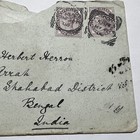 Herbert Herron
Arrah
Shahabad District
Bengal
India